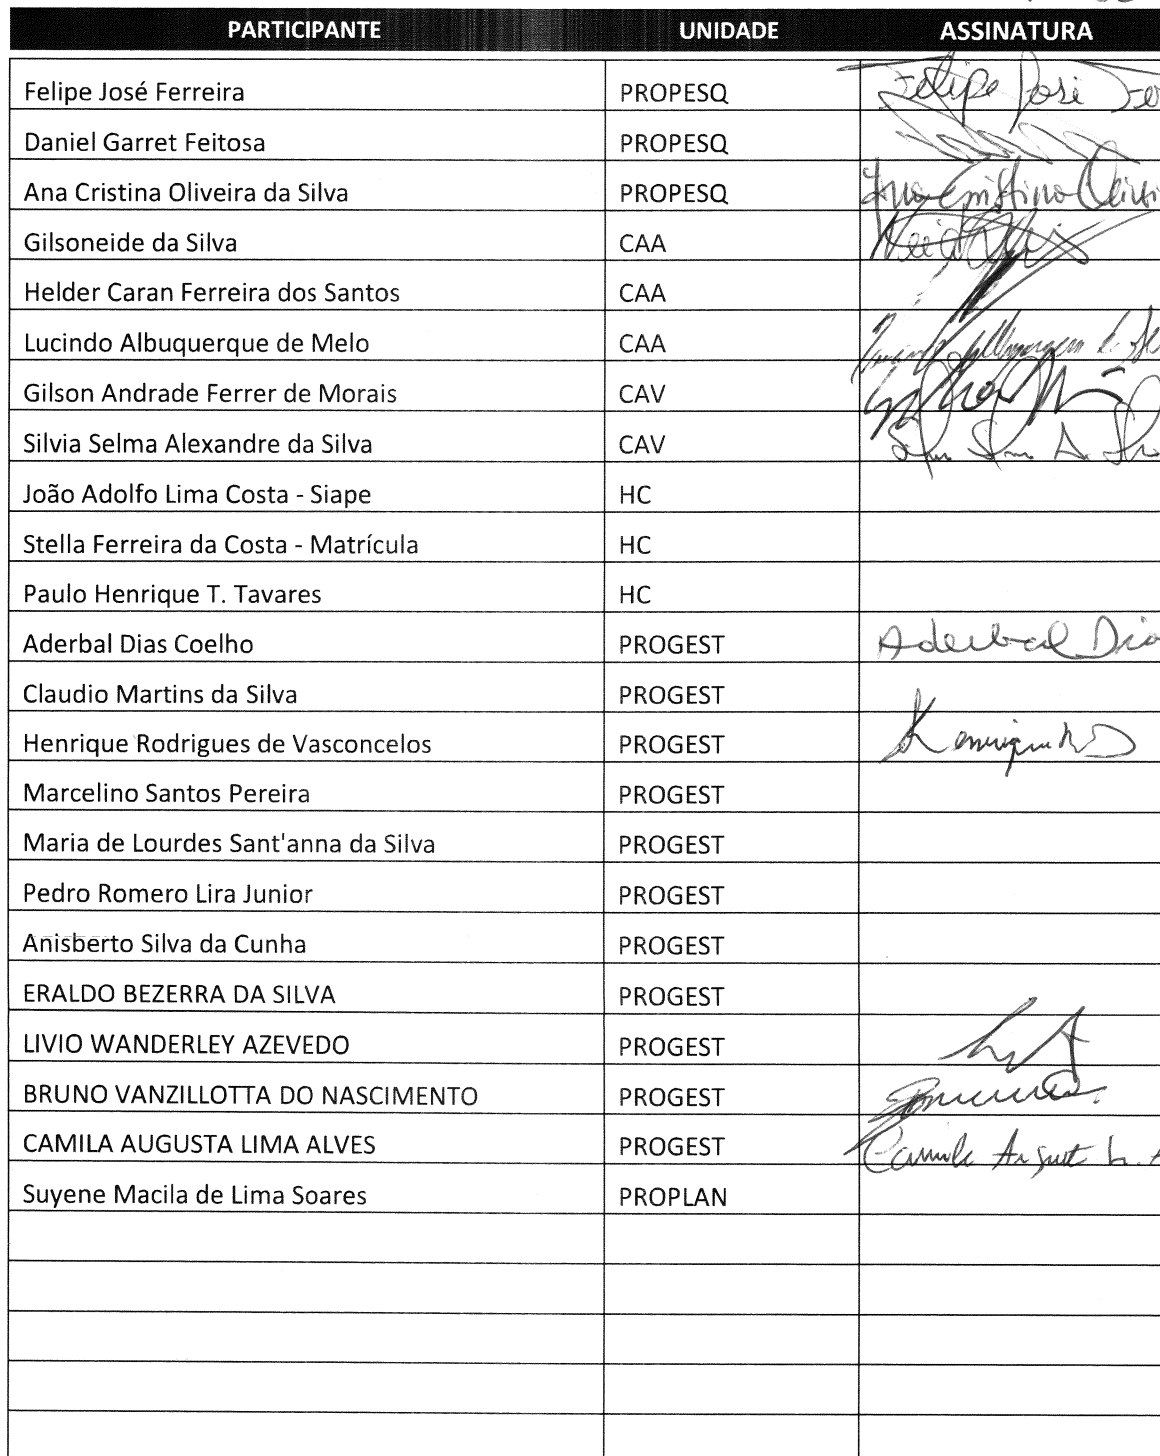 PARTICIPANTE UNIDADE ASSINATURA
Felipe José Ferreira PROPESQ Felipe José Fer
Daniel Garret Feitosa PROPESQ
Ana Cristina Oliveira da Silva PROPESQ Ana Cristina Olivei
Gilsoneide da Silva CAA
Helder Caran Ferreira dos Santos CAA
Lucindo Albuquerque de Melo CAA
Gilson Andrade Ferrer de Morais CAV
Silvia Selma Alexandre da Silva CAV
João Adolfo Lima Costa - Siape HC
Stella Ferreira da Costa - Matrícula HC
Paulo Henrique T. Tavares HC
Aderbal Dias Coelho PROGEST Aderbal Dia
Claudio Martins da Silva PROGEST
Henrique Rodrigues de Vasconcelos PROGEST
Marcelino Santos Pereira PROGEST
Maria de Lourdes Sant'anna da Silva PROGEST
Pedro Romero Lira Junior PROGEST
Anisberto Silva da Cunha PROGEST
ERALDO BEZERRA DA SILVA PROGEST
LIVIO WANDERLEY AZEVEDO PROGEST
BRUNO VANZILLOTTA DO NASCIMENTO PROGEST
CAMILA AUGUSTA LIMA ALVES PROGEST Camila August L. A
Suyene Macila de Lima Soares PROPLAN